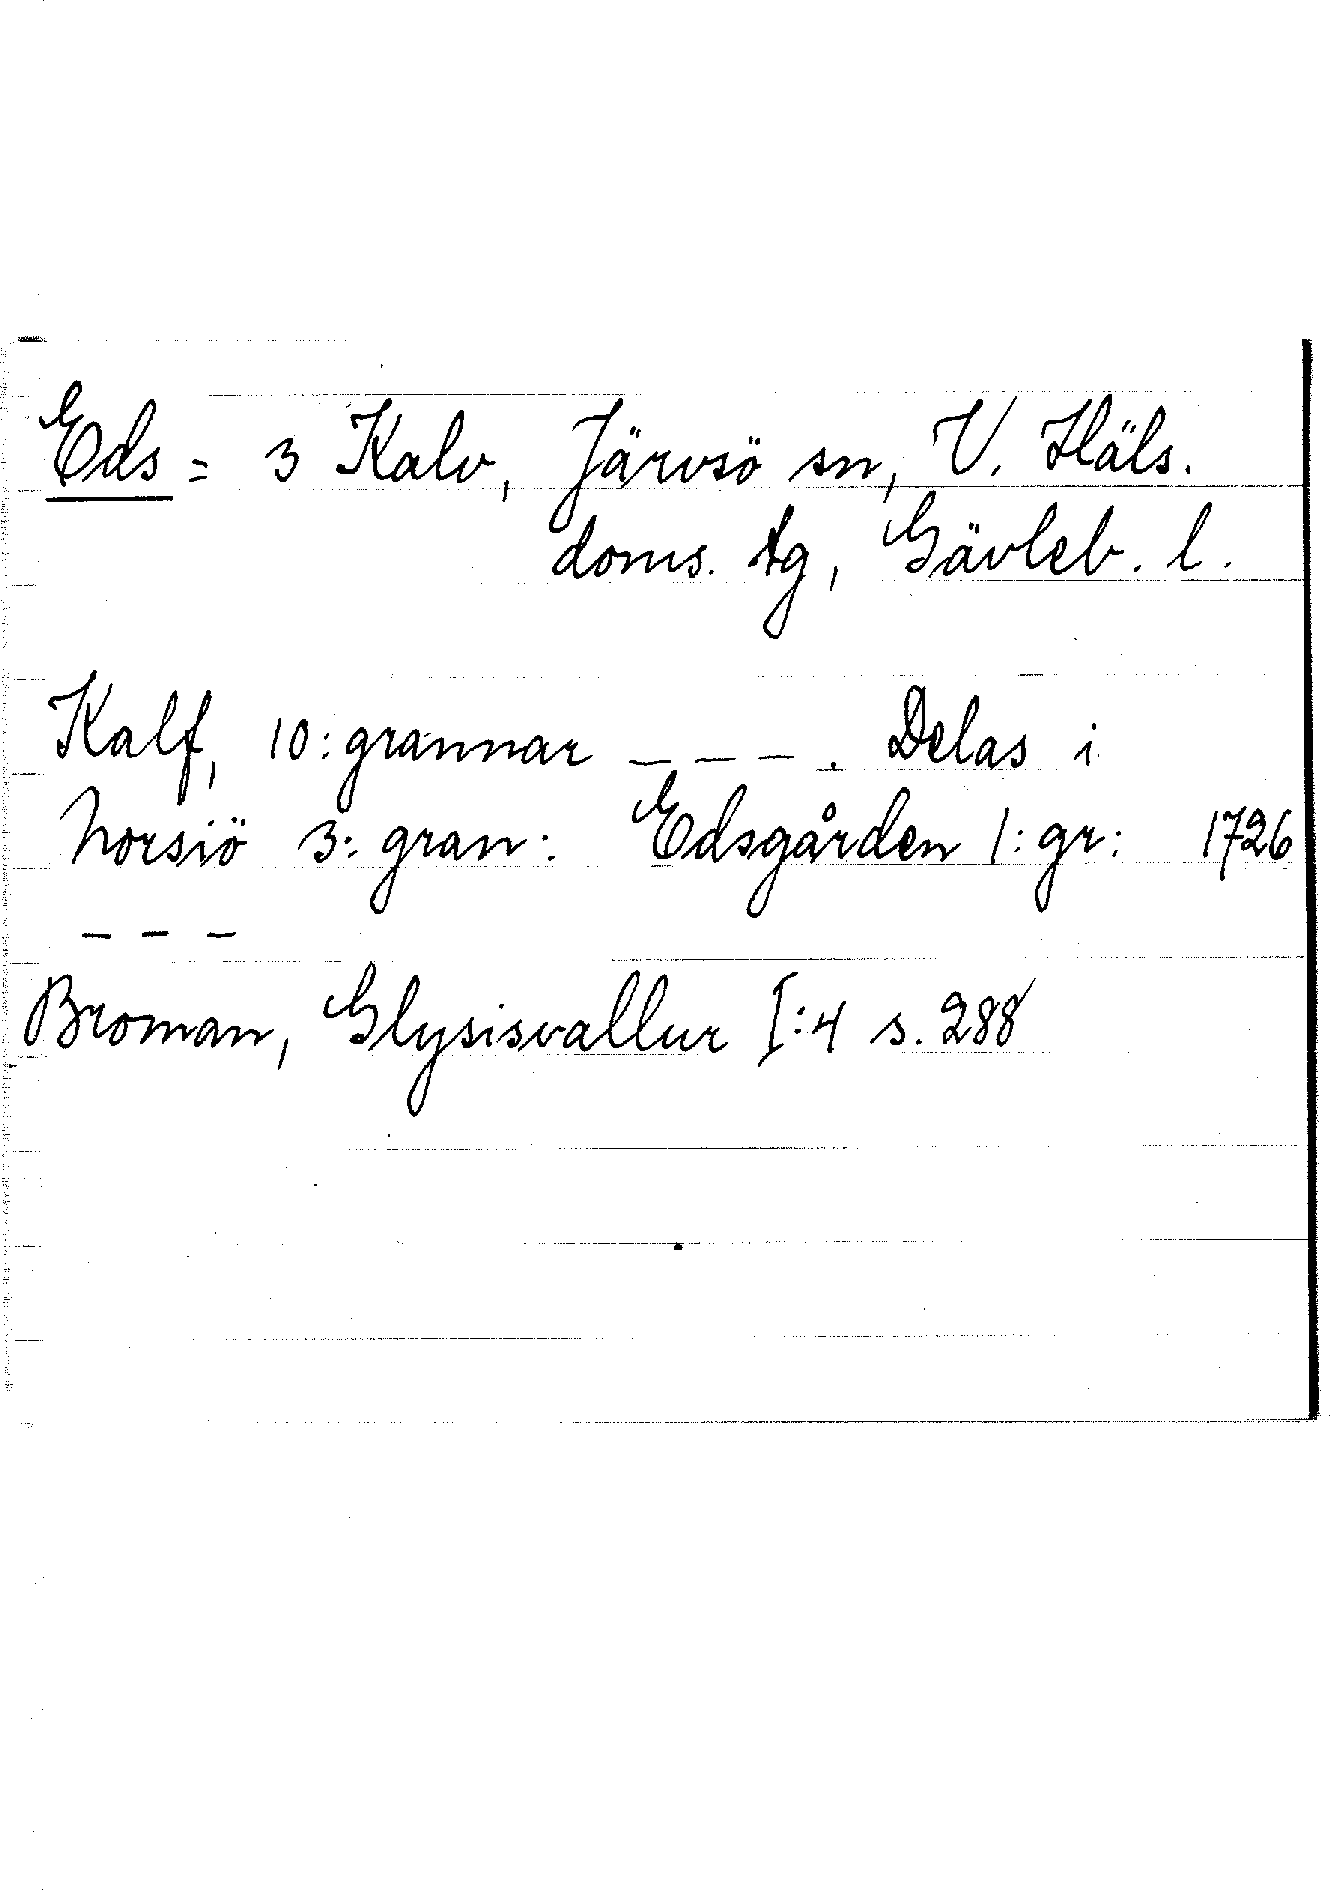 Eds = 3 Kalv, Järvsö sn, V. Häls.
doms. tg, Gävleb. l.
Kalf, 10: grannar _ _ _ . Delas i
Norsiö 3: gran: Edsgården 1: gr: 1726
_ _ _
Broman, Glysisvallur I:4 s. 288